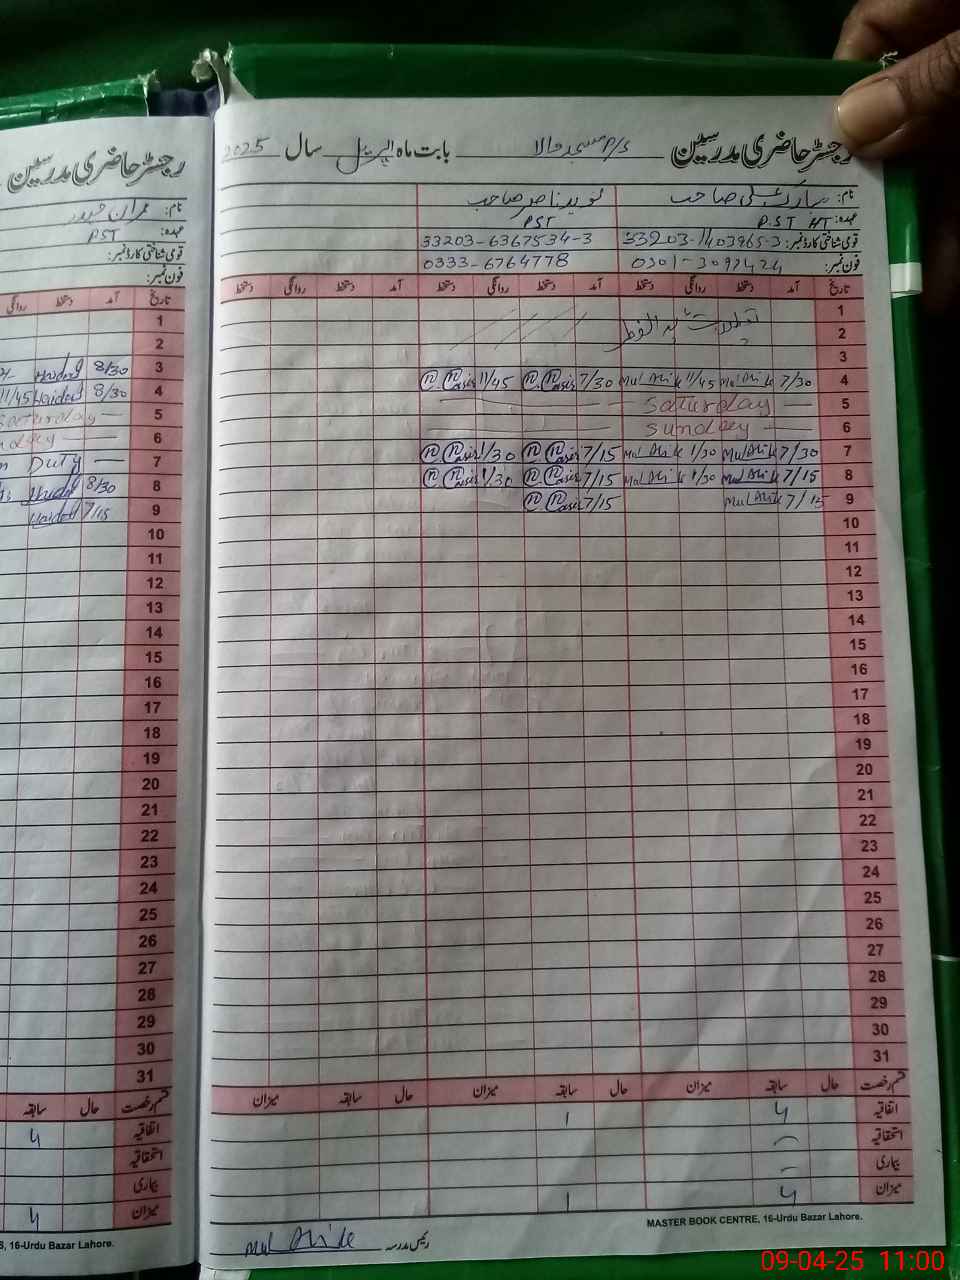 رجسٹر حاضری مدرسین P/S مسجد والا بابت ماہ اپریل سال 2025
نام: مبارک علی صاحب نوید ناصر صاحب
عہدہ: P.ST HT PST
قومی شناختی کارڈ نمبر: 33203-1403965-3 33203-6367534-3
فون نمبر: 0333-6764778
تاریخ آمد دستخط روانگی دستخط آمد دستخط روانگی دستخط آمد دستخط روانگی دستخط
1
2 تعطیلات عید الفطر
3
4 7/30 Mul Alik 11/45 Mul Alik 7/30 11/45
5 Saturday
6 Sunday
7 7/30 Mul Alik 1/30 Mul Alik 7/15 1/30
8 7/15 Mul Alik 1/30 Mul Alik 7/15 1/30
9 7/15 Mul Alik 7/15
10
11
12
13
14
15
16
17
18
19
20
21
22
23
24
25
26
27
28
29
30
31
قسم رخصت حال سابقہ میزان حال سابقہ میزان حال سابقہ میزان
اتفاقیہ 4 1
استحقاقیہ
بیماری
میزان 4 1
MASTER BOOK CENTRE, 16-Urdu Bazar Lahore.
رئیس مدرسہ Mul Alik
رجسٹر حاضری مدرسین
نام: عمران حیدر
عہدہ: PST
قومی شناختی کارڈ نمبر:
فون نمبر:
تاریخ آمد دستخط روانگی
1
2
3 8/30 Haider
4 8/30 Haider 11/45
5 Saturday
6
7 Duty
8 8/30 Haider
9 7/15 Haider
10
11
12
13
14
15
16
17
18
19
20
21
22
23
24
25
26
27
28
29
30
31
قسم رخصت حال سابقہ
اتفاقیہ 4
استحقاقیہ
بیماری
میزان 4
16-Urdu Bazar Lahore.
09-04-25 11:00